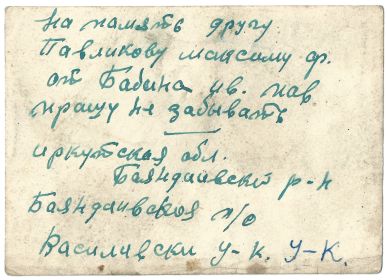 на память другу
Павликову максиму ф.
от Бабина ив. пав
прашу не забывать
иркутская обл.
Баяндаивски р-н
Баяндаивская п/о
Василавски у-к. у-к.